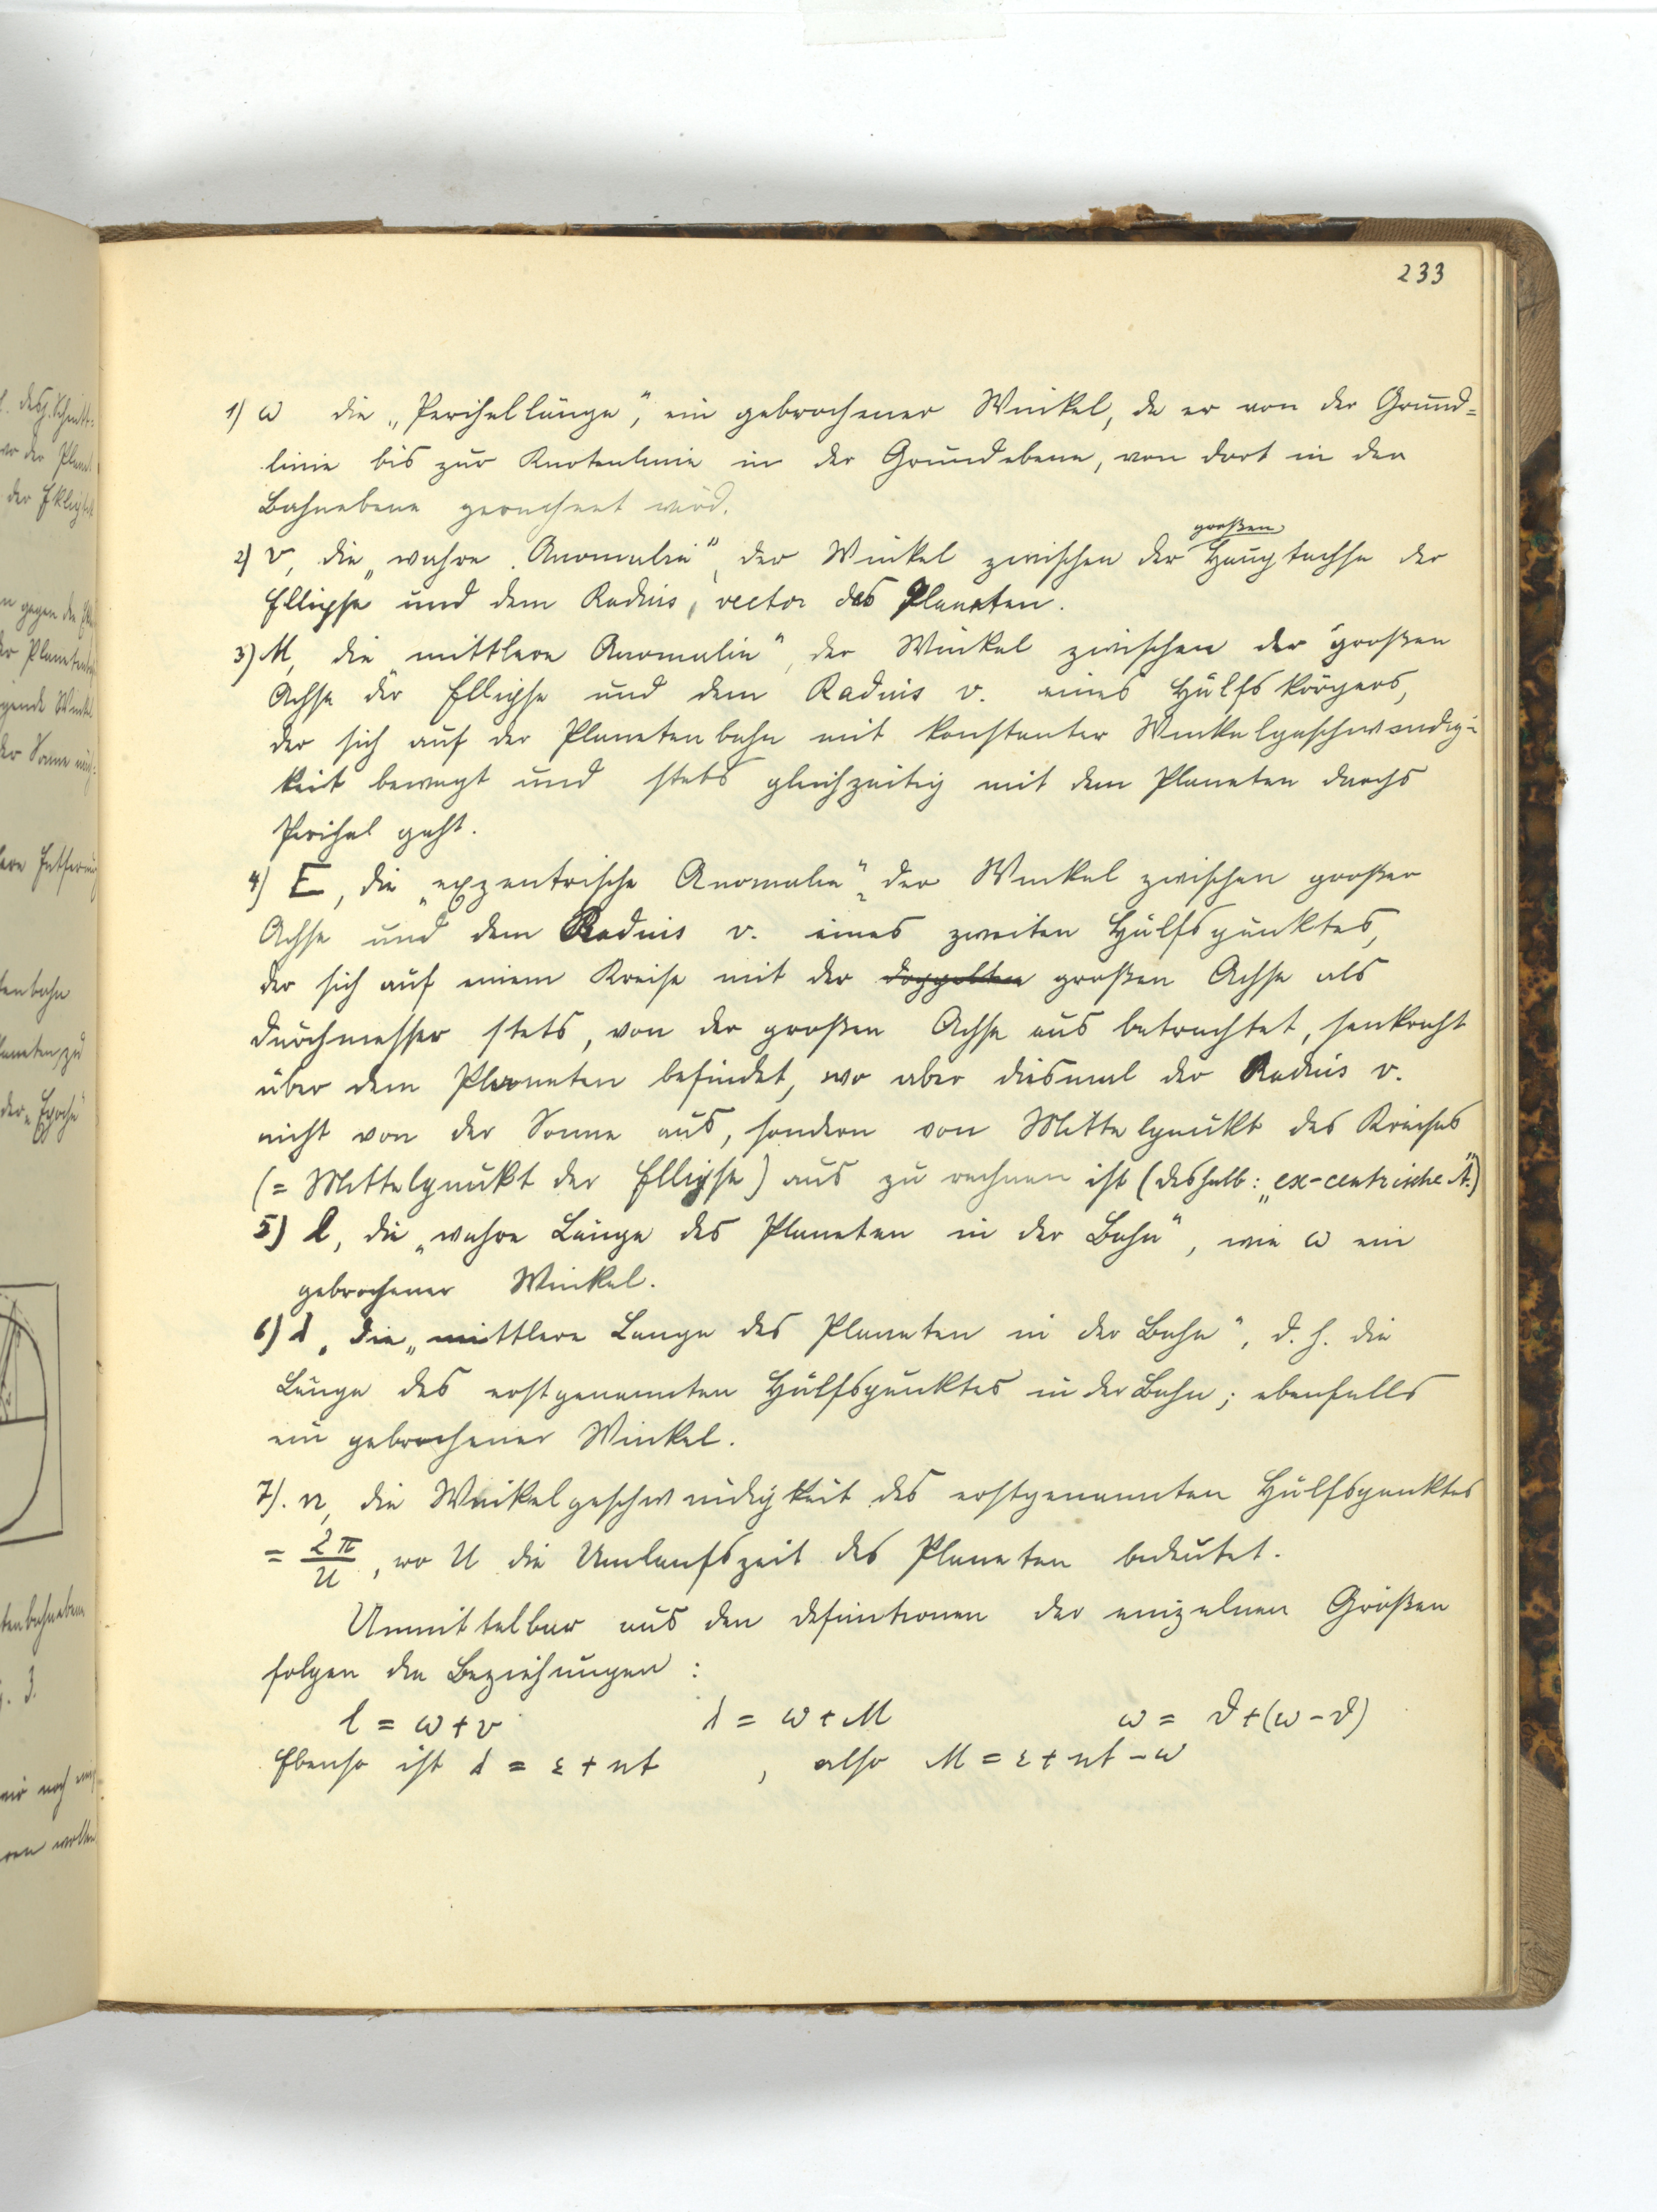 233
1) ω die „Perihellänge“, ein gebrochener Winkel, da er von der Grund=
linie bis zur Knotenlinie in der Grundebene, von dort in der
Bahnebene gerechnet wird.
großen
2) v, die „wahre Anomalie“, der Winkel zwischen der Hauptachse der
Ellipse und dem Radius vector des Planeten.
3) M, die „mittlere Anomalie“, der Winkel zwischen der großen
Achse der Ellipse und dem Radius v. eines Hülfskörpers,
der sich auf der Planetenbahn mit konstanter Winkelgeschwindig=
keit bewegt und stets gleichzeitig mit dem Planeten durchs
Perihel geht.
4) E, die „exzentrische Anomalie“, der Winkel zwischen großer
Achse und dem Radius v. eines zweiten Hülfspunktes,
der sich auf einem Kreise mit der doppelten großen Achse als
Durchmesser stets, von der großen Achse aus betrachtet, senkrecht
über dem Planeten befindet, wo aber diesmal der Radius v.
nicht von der Sonne aus, sondern von Mittelpunkt des Kreises
(= Mittelpunkt der Ellipse) aus zu rechnen ist (deshalb: „ex-centrische A.“)
5) l, die „wahre Länge des Planeten in der Bahn“, wie ω ein
gebrochener Winkel.
6) λ, die „mittlere Länge des Planeten in der Bahn“, d. h. die
Länge des erstgenannten Hülfspunktes in der Bahn; ebenfalls
ein gebrochener Winkel.
7). n, die Winkelgeschwindigkeit des erstgenannten Hülfspunktes
= 2π/U, wo U die Umlaufszeit des Planeten bedeutet.
Unmittelbar aus den Definitionen der einzelnen Größen
folgen die Beziehungen:
l = ω + v λ = ω + M ω = ϑ + (ω − ϑ)
Ebenso ist λ = ε + nt, also M = ε + nt − ω